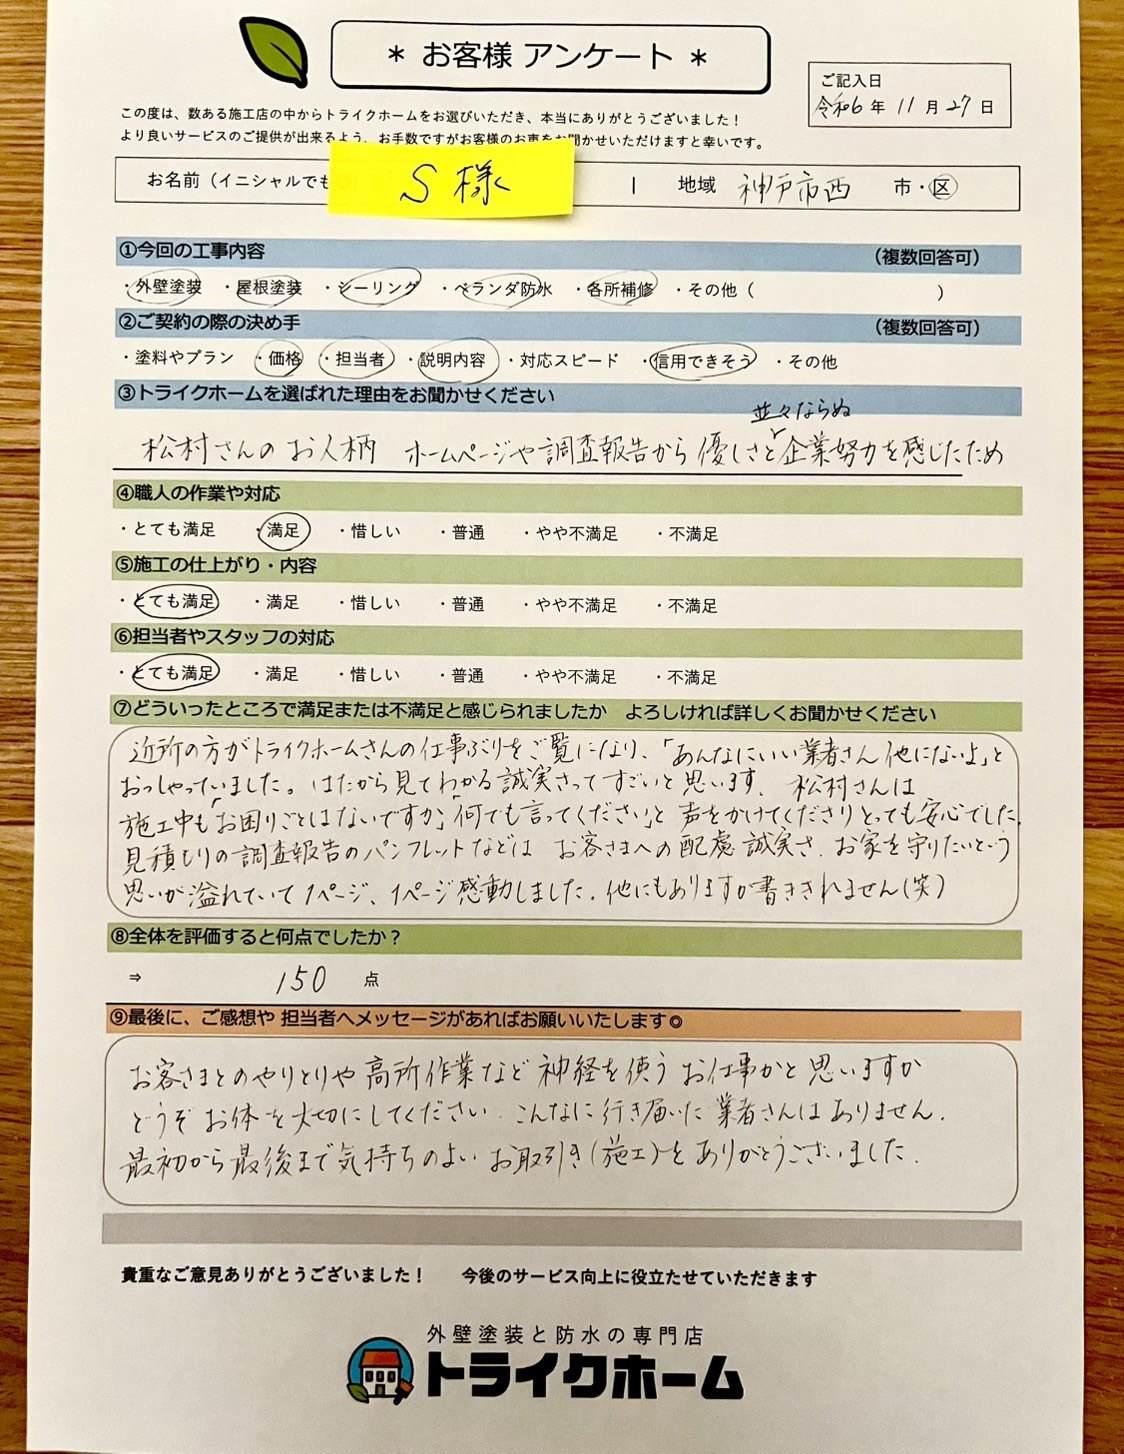 * お客様 アンケート *
ご記入日
令和6年11月27日
この度は、数ある施工店の中からトライクホームをお選びいただき、本当にありがとうございました！
より良いサービスのご提供が出来るよう、お手数ですがお客様のお声をお聞かせいただけますと幸いです。
お名前（イニシャルでも S様 地域 神戸市西 市・区
①今回の工事内容 （複数回答可）
・外壁塗装 ・屋根塗装 ・シーリング ・ベランダ防水 ・各所補修 ・その他（ ）
②ご契約の際の決め手 （複数回答可）
・塗料やプラン ・価格 ・担当者 ・説明内容 ・対応スピード ・信用できそう ・その他
③トライクホームを選ばれた理由をお聞かせください
並々ならぬ
松村さんのお人柄 ホームページや調査報告から優しさと企業努力を感じたため
④職人の作業や対応
・とても満足 ・満足 ・惜しい ・普通 ・やや不満足 ・不満足
⑤施工の仕上がり・内容
・とても満足 ・満足 ・惜しい ・普通 ・やや不満足 ・不満足
⑥担当者やスタッフの対応
・とても満足 ・満足 ・惜しい ・普通 ・やや不満足 ・不満足
⑦どういったところで満足または不満足と感じられましたか よろしければ詳しくお聞かせください
近所の方がトライクホームさんの仕事ぶりをご覧になり、「あんなにいい業者さん他にないよ」と
おっしゃっていました。はたから見てわかる誠実さってすごいと思います。松村さんは
施工中も「お困りごとはないですか」「何でも言ってください」と声をかけてくださりとっても安心でした。
見積もりの調査報告のパンフレットなどは お客さまへの配慮 誠実さ、お家を守りたいという
思いが溢れていて1ページ、1ページ感動しました。他にもありますが書ききれません(笑)
⑧全体を評価すると何点でしたか？
⇒ 150 点
⑨最後に、ご感想や 担当者へメッセージがあればお願いいたします◎
お客さまとのやりとりや高所作業など神経を使うお仕事かと思いますが
どうぞお体を大切にしてください。こんなに行き届いた業者さんはありません。
最初から最後まで気持ちのよいお取引き(施工)をありがとうございました。
貴重なご意見ありがとうございました！ 今後のサービス向上に役立たせていただきます
外壁塗装と防水の専門店
トライクホーム